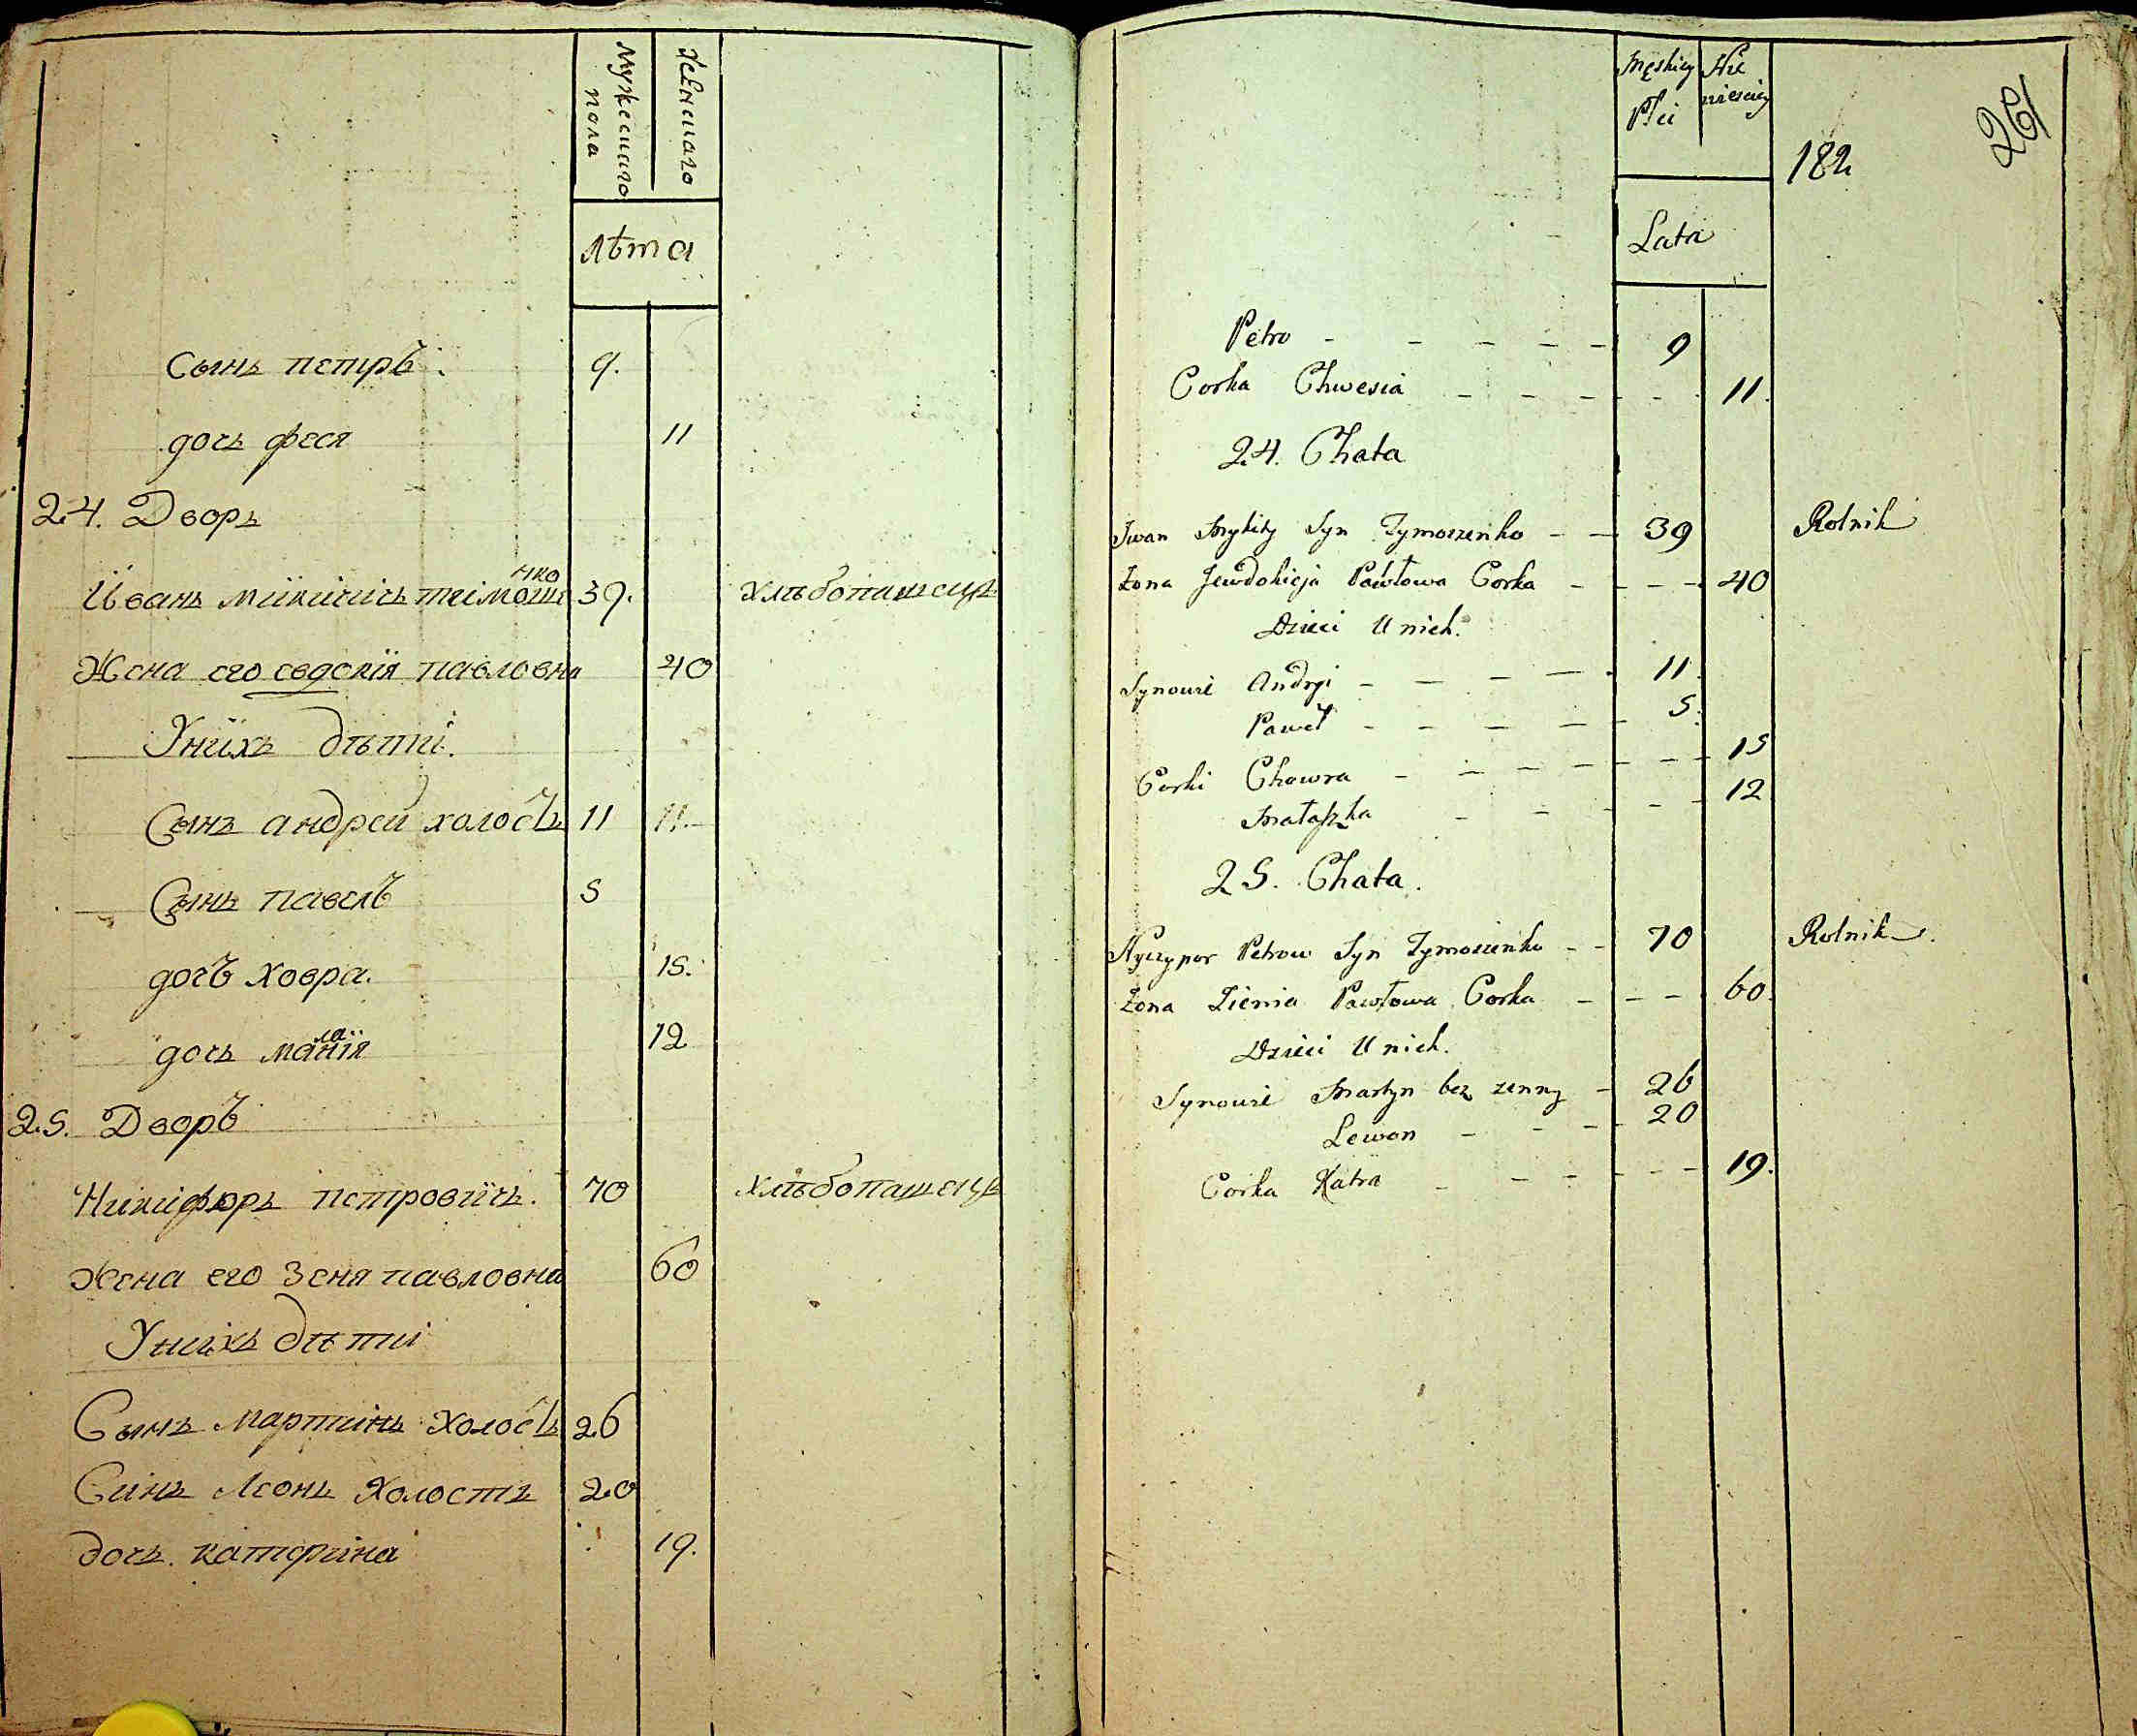 Мужескаго пола
Женскаго
Лѣта
Сынъ петръ. 9.
дочь феся 11
24. Дворъ
Иванъ микичичь тимошенко 39. хлѣбопашецъ
Жена его евдокія павловна 40
Унихъ дѣти.
Сынъ андреи холостъ 11 11
Сынъ павелъ 5
дочъ ховра. 15.
дочь маланія 12
25. Дворъ
Никифоръ петровичь. 70 хлѣбопашецъ
Жена его Зеня павловна 60
Унихъ дѣти
Сынъ мартинъ холостъ 26
Синъ Леонъ холостъ 20
дочь катерина 19.
Męskiey Płci
Niewiesciey
182
261
Lata
Petro - - - - - 9
Corka Chwesia - - - - - 11.
24. Chata
Iwan Mykity Syn Tymoszenko - - 39 Rolnik
Żona Jewdokieja Pawłowa Corka - - - - 40
Dzieci U nich.
Synowie Andryi - - - - 11.
Paweł - - - - - 5.
Corki Chowra - - - - - - - 15
Małaszka - - - - - 12
25. Chata.
Nyczypor Petrow Syn Tymoszenko - - 70 Rolnik.
Żona Zienia Pawłowa Corka - - - 60.
Dzieci U nich.
Synowie Martyn bez zenny - 26
Lewon - - - - 20
Corka Katra - - - - - - 19.